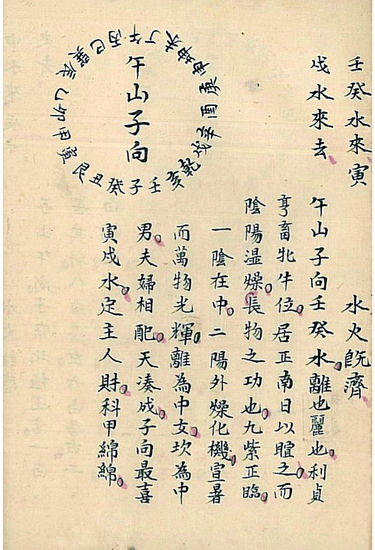 壬癸水來寅
戌水來去
水火既濟
午山子向壬癸水離也麗也利貞
亨畜牝牛位居正南日以暄之而
陰陽湿燥長物之功也九紫正臨
一陰在中二陽外燥化機宣暑
而萬物光輝離為中女坎為中
男夫婦相配天湊成子向最喜
寅戌水定主人財科甲綿綿
午山子向
壬子癸丑艮寅甲卯乙辰巽巳丙午丁未坤申庚酉辛戌乾亥